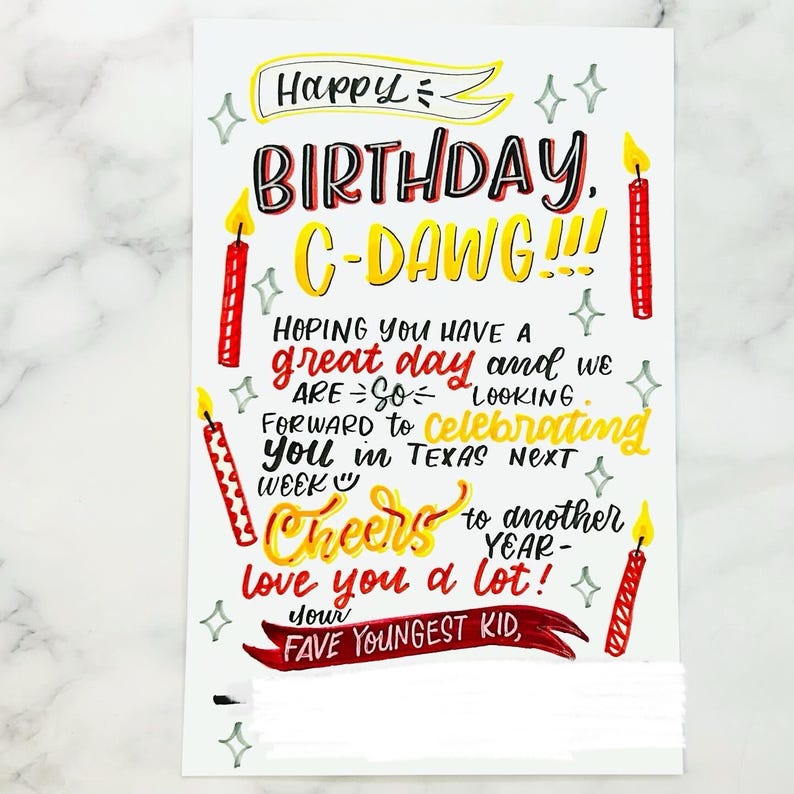 Happy
BIRTHDAY,
C-DAWG!!!
HOPING YOU HAVE A
great day and WE
ARE SO LOOKING
FORWARD to celebrating
you in TEXAS NEXT
WEEK
Cheers to another
YEAR-
love you a lot!
your
FAVE YOUNGEST KID,